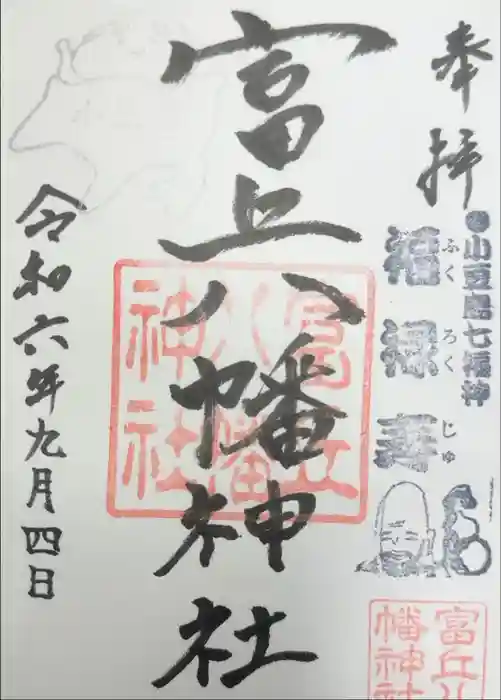 奉拝
●小豆島七福神
福禄寿
ふくろくじゅ
富丘八幡神社
富丘
八幡
神社
富丘八
幡神社
令和六年九月四日